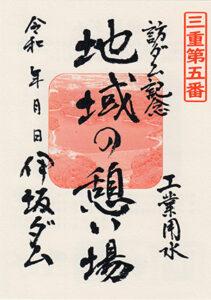 三重第五番
訪ダム記念
工業用水
地域の憩い場
伊坂ダム
令和 年 月 日